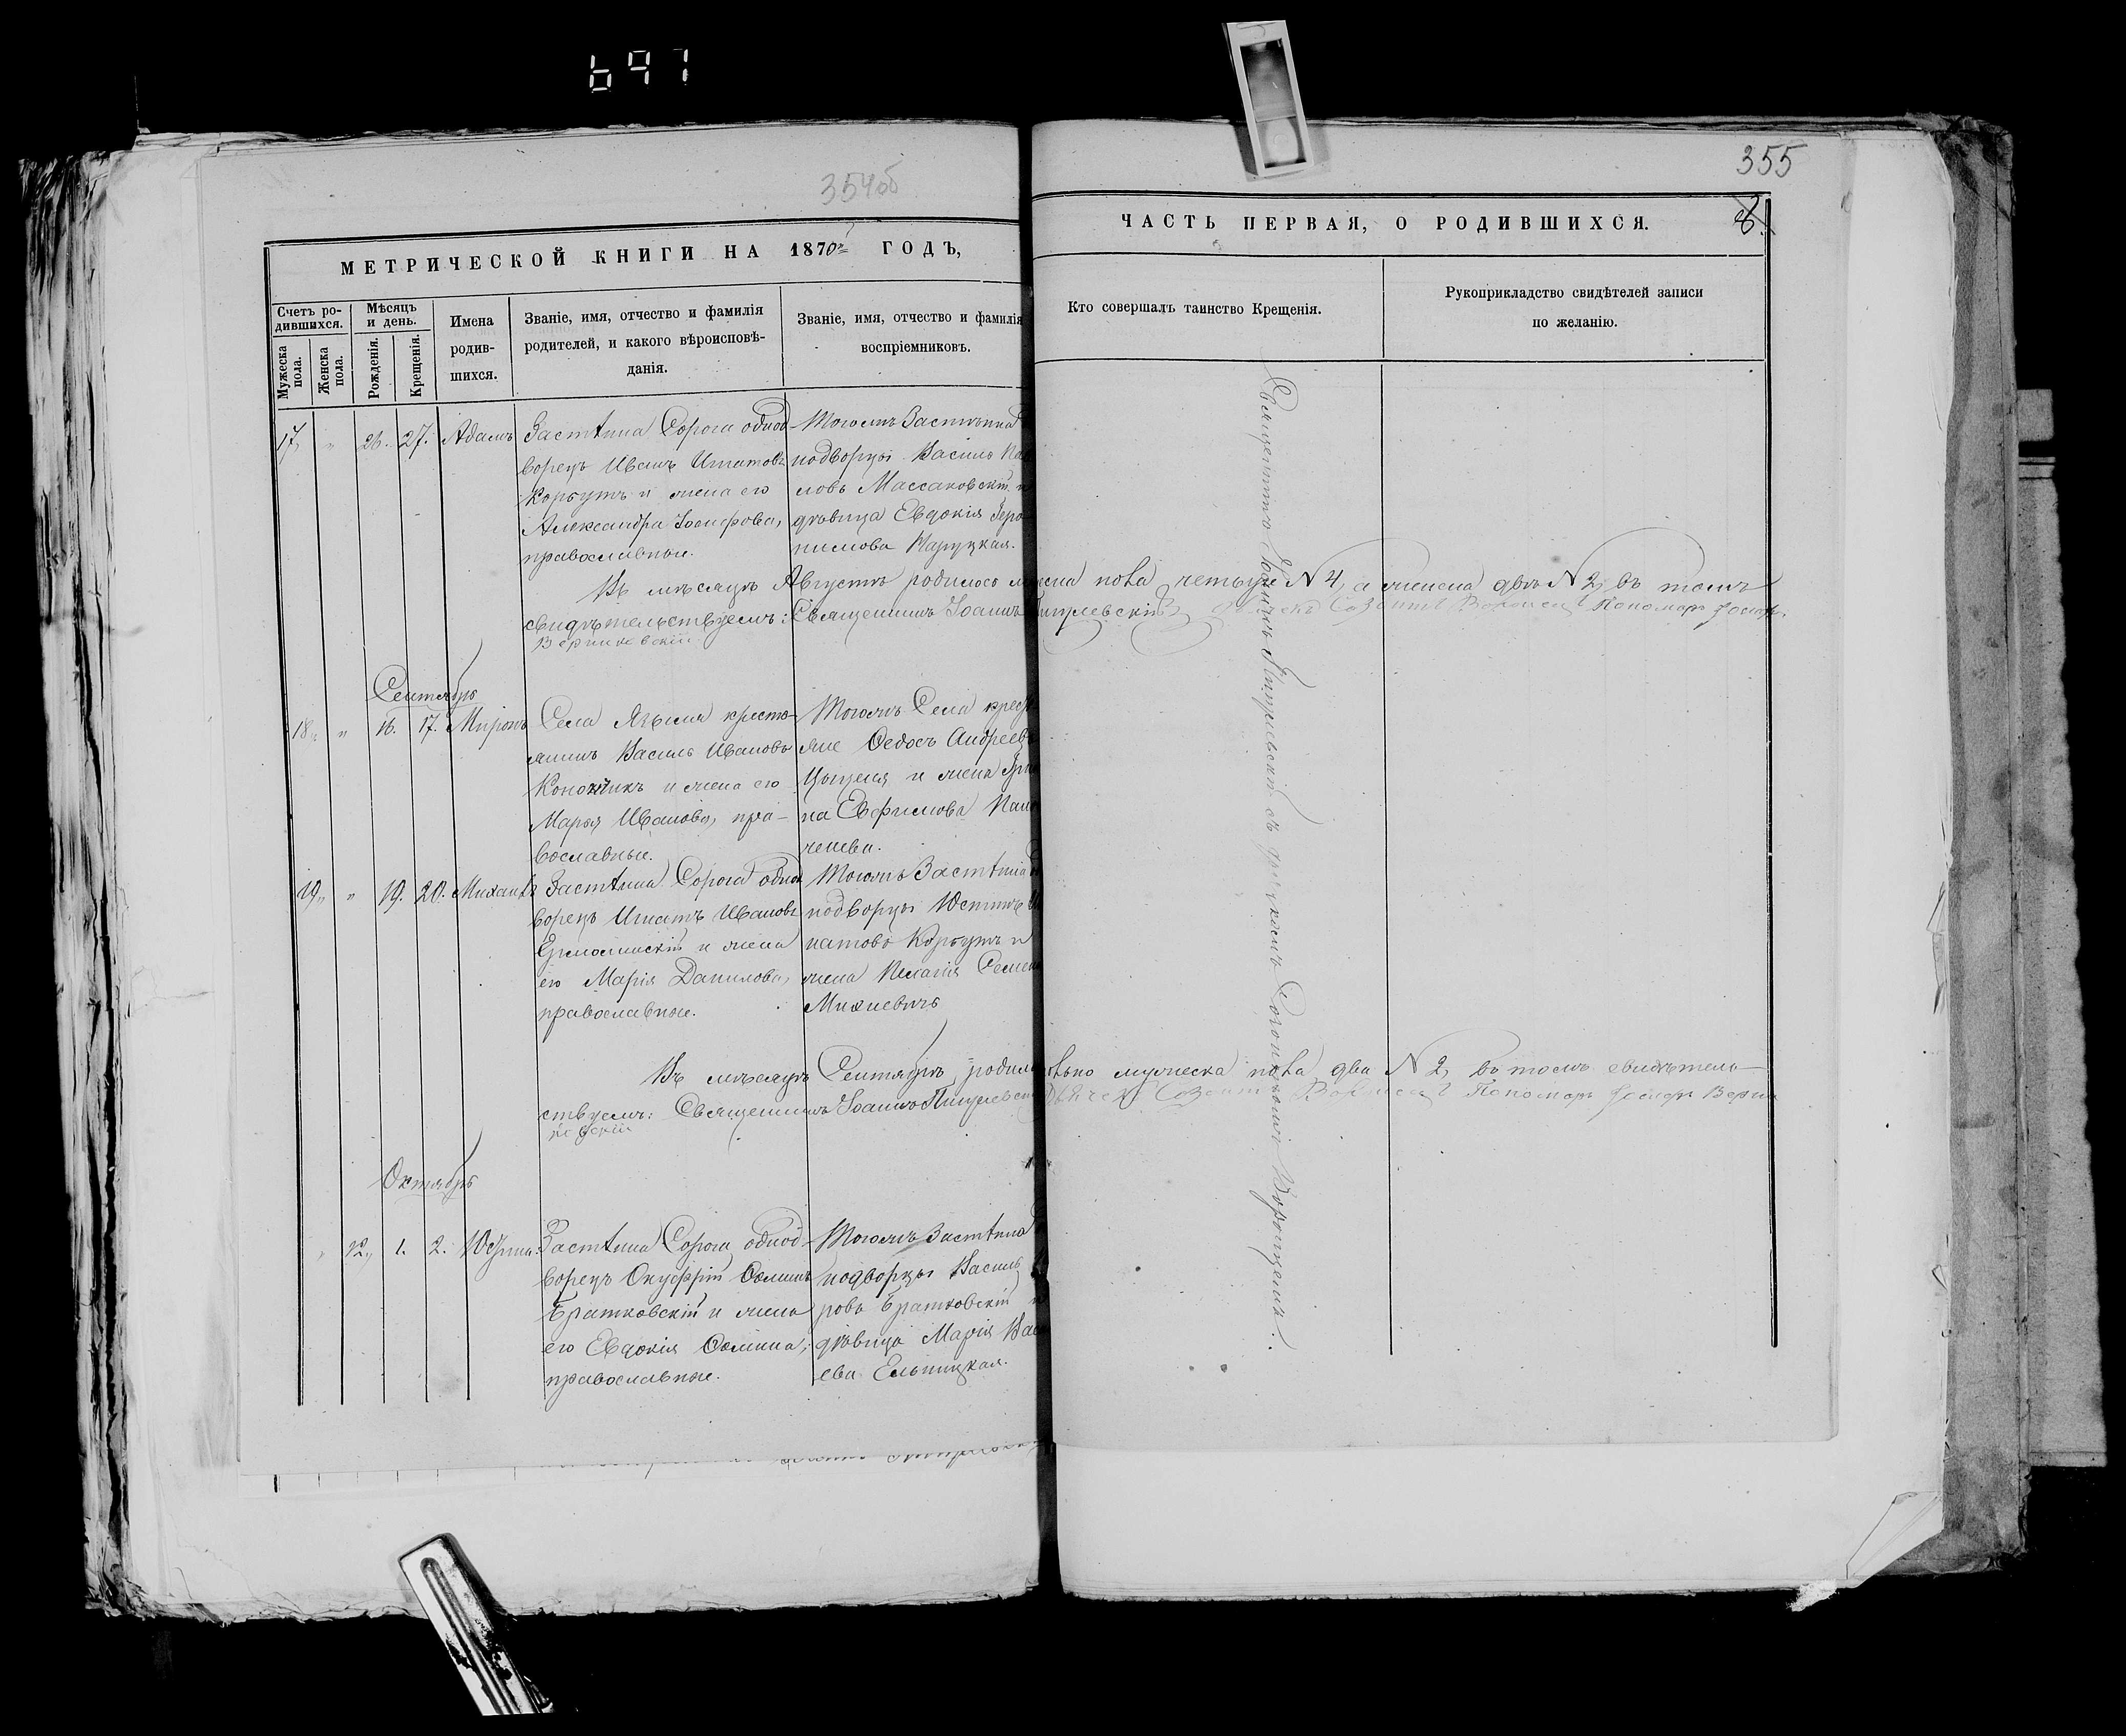 697
354об
355
МЕТРИЧЕСКОЙ КНИГИ НА 1870й ГОДЪ,
ЧАСТЬ ПЕРВАЯ, О РОДИВШИХСЯ.
8.
Счетъ ро-
дившихся.
Мужеска
пола.
Женска
пола.
Мѣсяцъ
и день.
Рожденія.
Крещенія.
Имена
родив-
шихся.
Званіе, имя, отчество и фамилія
родителей, и какого вѣроисповѣ-
данія.
Званіе, имя, отчество и фамилія
воспріемниковъ.
Кто совершалъ таинство Крещенія.
Рукоприкладство свидѣтелей записи
по желанію.
17, " 26. 27. Адамъ
Застѣнка Сорога однод
ворецъ Иванъ Игнатовъ
Корбутъ и жена его
Александра Іосифова,
православные.
Тогожъ Застѣнка
нодворцы Василь
ловъ Массаковскій и
дѣвица Евдокія Іеро
нимова Наруцкая.
Въ мѣсяцѣ Августѣ родилось мужеска пола четыре N 4, а женска двѣ N 2, въ томъ
свидѣтельствуемъ: Священникъ Іоаннъ Созонтъ Пономарь
Сентябрь
18, " 16. 17. Миронъ
Села Язвина кресть
янинъ Василь Ивановъ
Конончикъ и жена его
Марья Иванова, пра-
вославные.
Тогожъ Села крес
яне Ѳедосъ Андреевъ
и жена
на Евфимова
19, " 19. 20. Михаилъ
Застѣнка Сорога однод
ворецъ Игнатъ Ивановъ
Ермолинскій и жена
его Марія Данилова,
православные.
Тогожъ Застѣнка
нодворцы Юстинъ
натовъ Корбутъ и
жена Пелагія Семен
Михневичъ
Въ мѣсяцѣ Сентябрѣ родилось только мужеска пола два N 2, въ томъ свидѣтель-
ствуемъ: Священникъ Іоаннъ Созонтъ Пономарь
Октябрь
" 12, 1. 2. Юстина.
Застѣнка Сорога однод-
ворецъ Онуфрій Ѳоминъ
Братковскій и жена
его Евдокія Ѳомина,
православные.
Тогожъ Застѣнка
нодворцы Василь
ровъ Братковскій и
дѣвица Марія Васи
ева Ельницкая.
Священникъ Іоаннъ съ